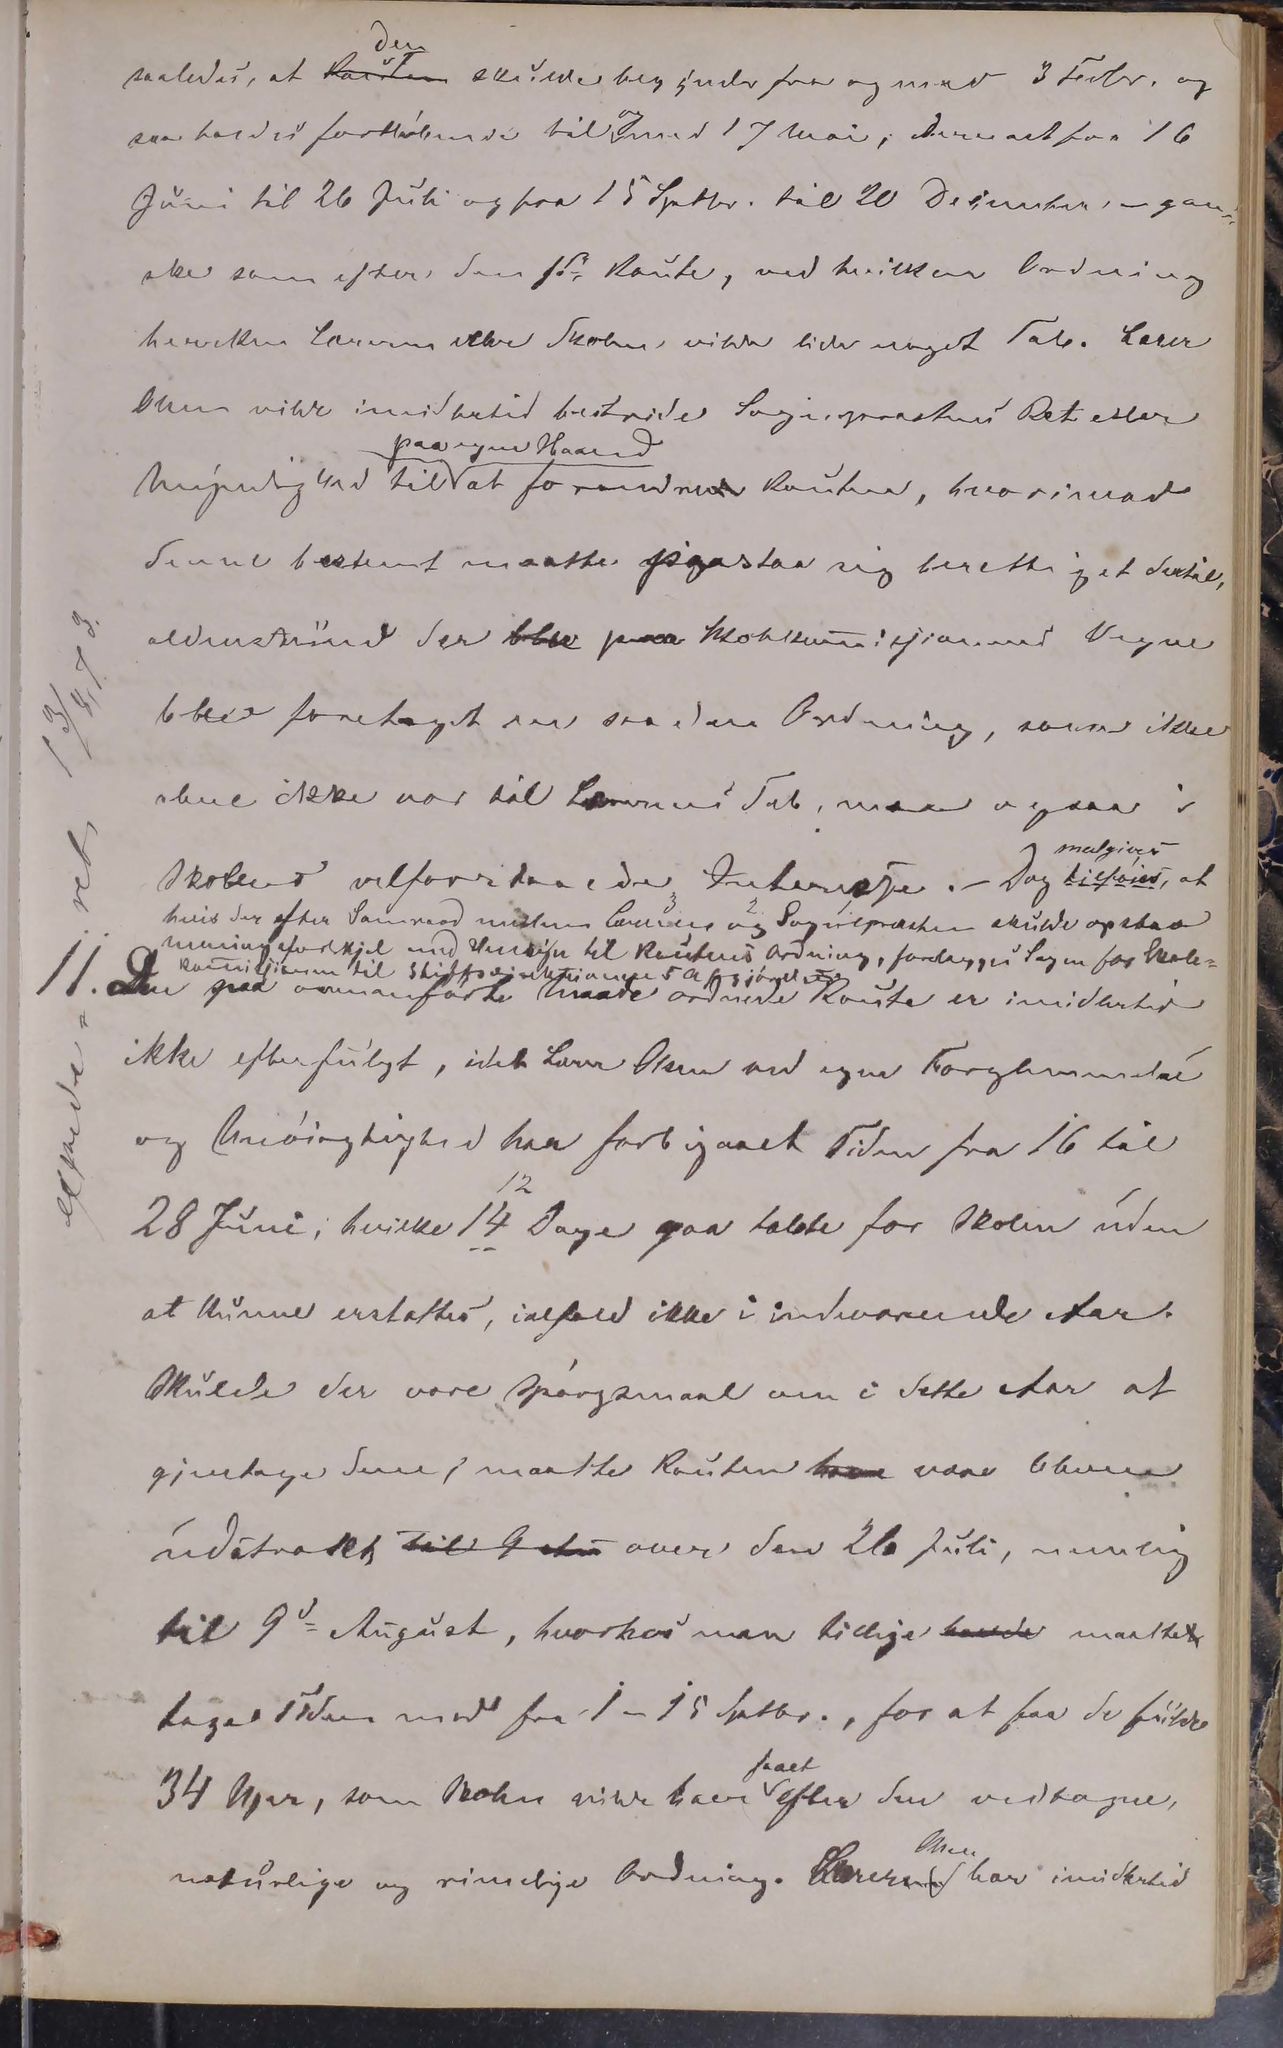 den
saaledes, at Routen skulde begynde fra og med 3 Febr. og
saaledes fortløbende til og med 17 Mai, dernæst fra 16
Juni til 26 Juli og fra 15 Septbr. til 20 December, – gan-
ske som efter den Route, ved hvilken Ordning
hverken Læreren eller Skolen vilde lide noget Tab. Lærer
Olsen vilde imidlertid bestride Sognepræstens Ret eller
paa egen Haand
Myndighed til at forandre Routen, hvorimod
denne bestemt maatte paastaa sig berettiget dertil,
aldenstund der blev paa Skolekommissionens Vegne
blev foretaget en saadan Ordning, som ikke
alene ikke var til Lærerens Tab, men ogsaa i
Skolens velforstaaede Interesse. – Dog tilføies, at
medgives
hvis der efter Samraad mellem Læreren og Sognepræsten skulde opstaa
Meningsforskjel med Hensyn til Routens Ordning, forelægges Sagen for Skole-
kommissionen til Stiftsdirektionens Afgjørelse
11. Den paa ovenanførte Maade ordnede Route er imidlertid
ikke efterfulgt, idet Lærer Olsen ved egen Forglemmelse
og Unøiagtighed har forbigaaet Tiden fra 16 til
12
28 Juni, hvilke 14 Dage gaa tabte for Skolen uden
at kunne erstattes, ialfald ikke i indeværende Aar.
Skulde der være Spørgsmaal om i dette Aar at
gjentage dem, maatte Routen have være bleven
udstrakt til 9 over den 26 Juli, nemlig
til 9de August, hvorhos man tillige havde maatte
tage Tiden med fra 1 – 15 Septbr., for at faa de fulde
faaet
34 Uger, som Skolen vilde have efter den vedtagne,
Olsen
naturlige og rimelige Ordning. Læreren har imidlertid